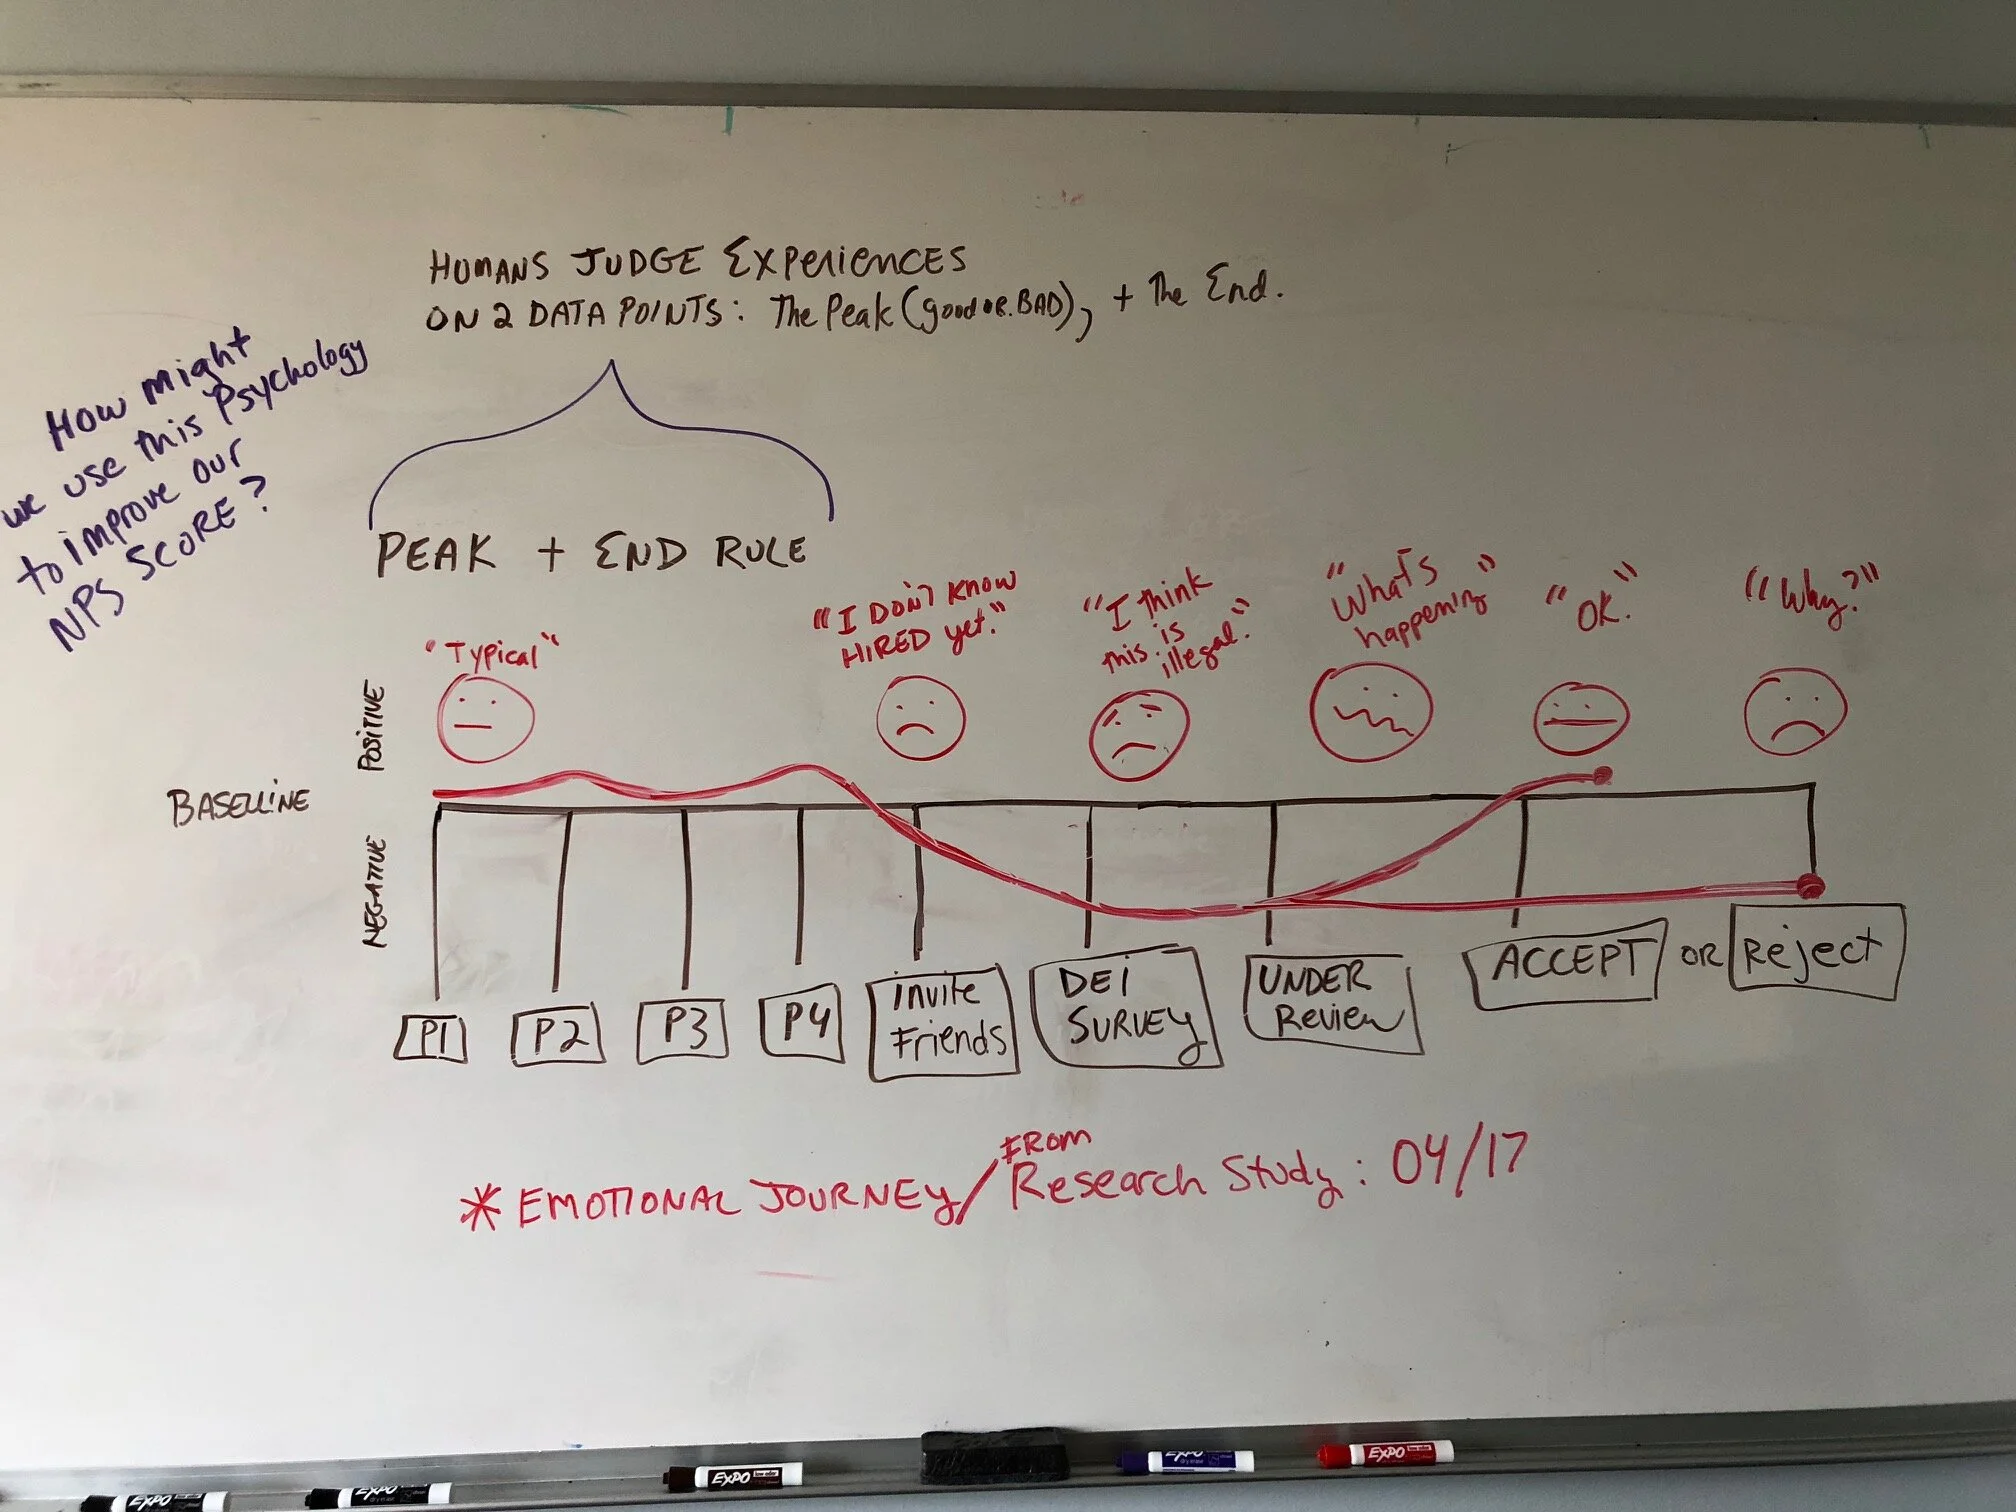 HUMANS JUDGE EXPERIENCES
ON 2 DATA POINTS: The Peak (good or BAD), + The End.
How might
we use this Psychology
to improve our
NPS SCORE?
PEAK + END RULE
"Typical"
"I DON'T KNOW
HIRED yet."
"I think
this is
illegal."
"What's
happening"
"OK."
"Why?"
POSITIVE
BASELINE
NEGATIVE
P1
P2
P3
P4
invite
Friends
DEI
SURVEY
UNDER
Review
ACCEPT
OR
Reject
* EMOTIONAL JOURNEY/FROM
Research Study: 04/17
EXPO
EXPO
EXPO
EXPO
EXPO